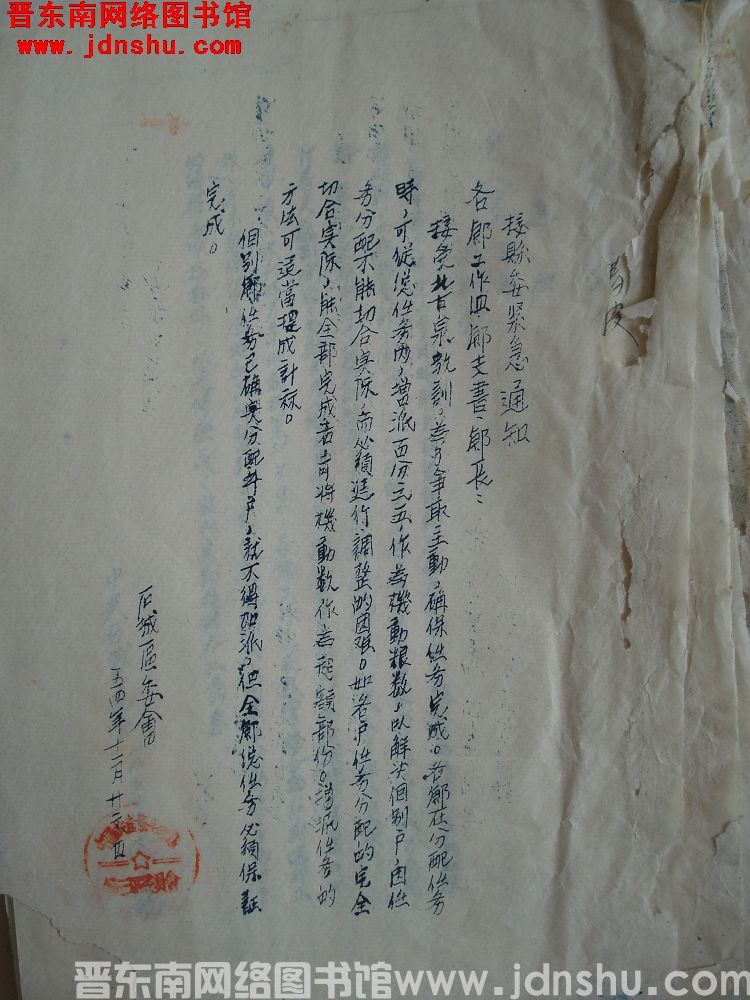 晋东南网络图书馆
www.jdnshu.com
接縣委緊急通知
各鄉工作組、鄉支書、鄉長：
為了爭取主動，確保任务完成。各鄉在分配任务
時，可從總任务內，增派百分之五，作為機動粮数，以解决個別户，因任
务分配不能切合实际，而必須進行調整的困难。如各户任务分配的完全
切合实际，能全部完成者，可將機動数作為超額部份。增派任务的
方法可适當提成計称。
個别鄉任务已確实分配并户，就不得加派，但全鄉總任务必須保証
完成。
石城區委會
五四年十二月廿
晋东南网络图书馆www.jdnshu.com